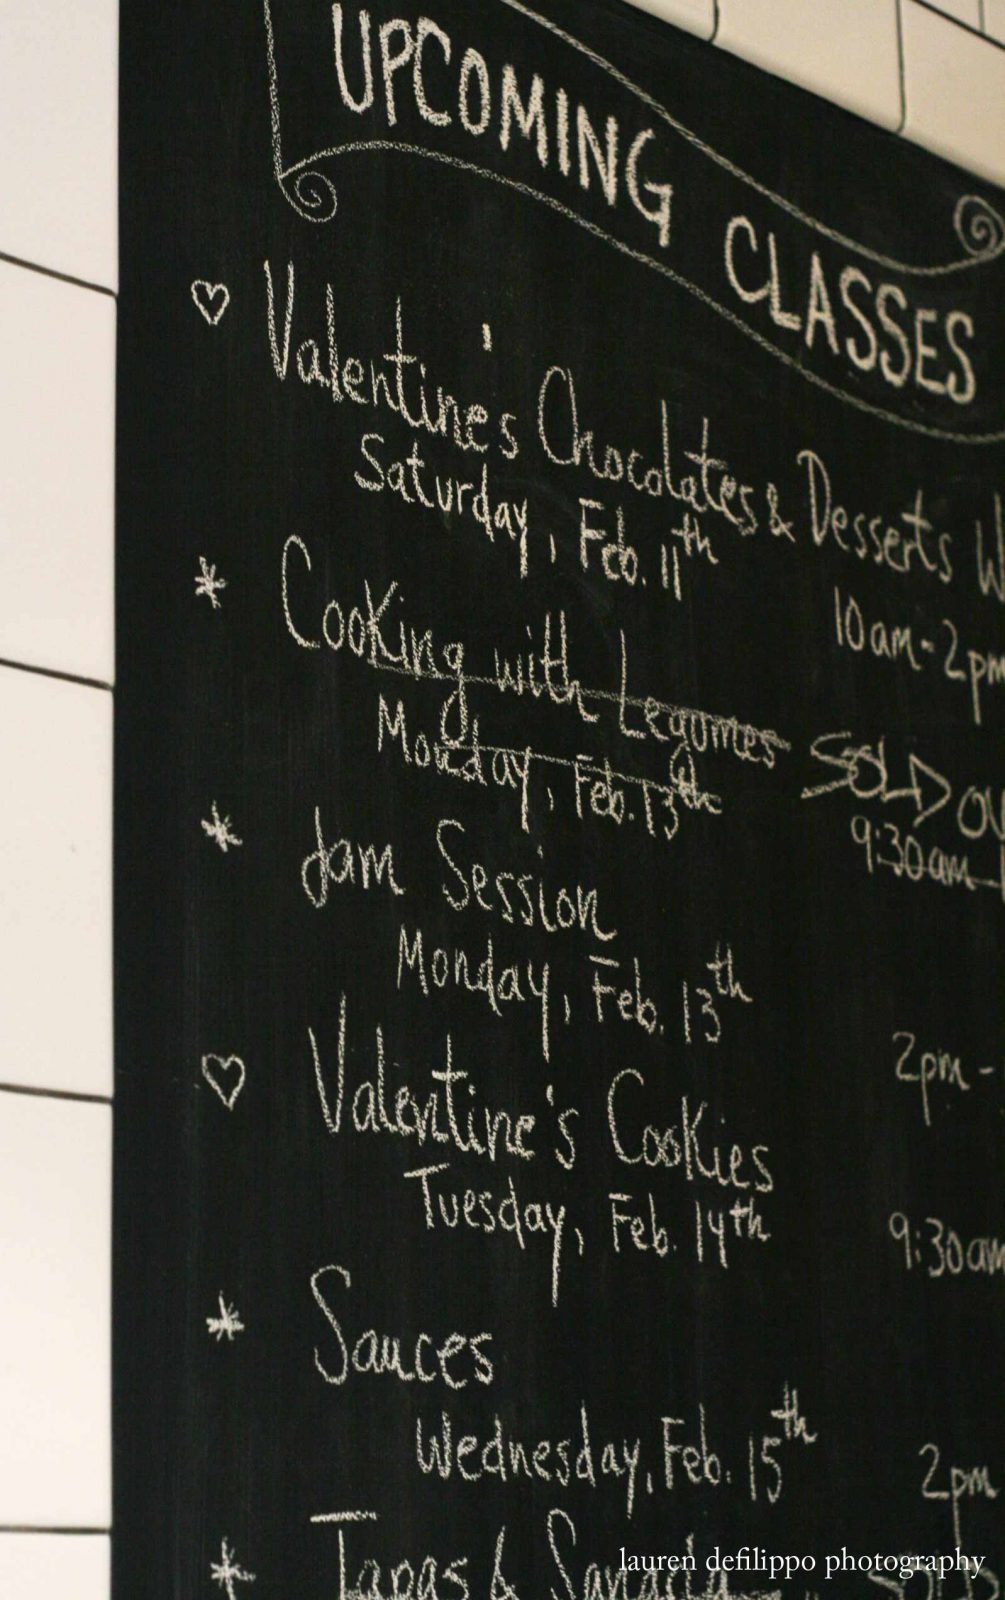 UPCOMING CLASSES
Valentine's Chocolates & Desserts
Saturday, Feb. 11th
10am-2pm
Cooking with Legumes SOLD
Monday, Feb. 13th 9:30am
Jam Session
Monday, Feb. 13th
2pm-
Valentine's Cookies
Tuesday, Feb. 14th 9:30am
Sauces
Wednesday, Feb. 15th 2pm
Tapas & Sangria
lauren defilippo photography